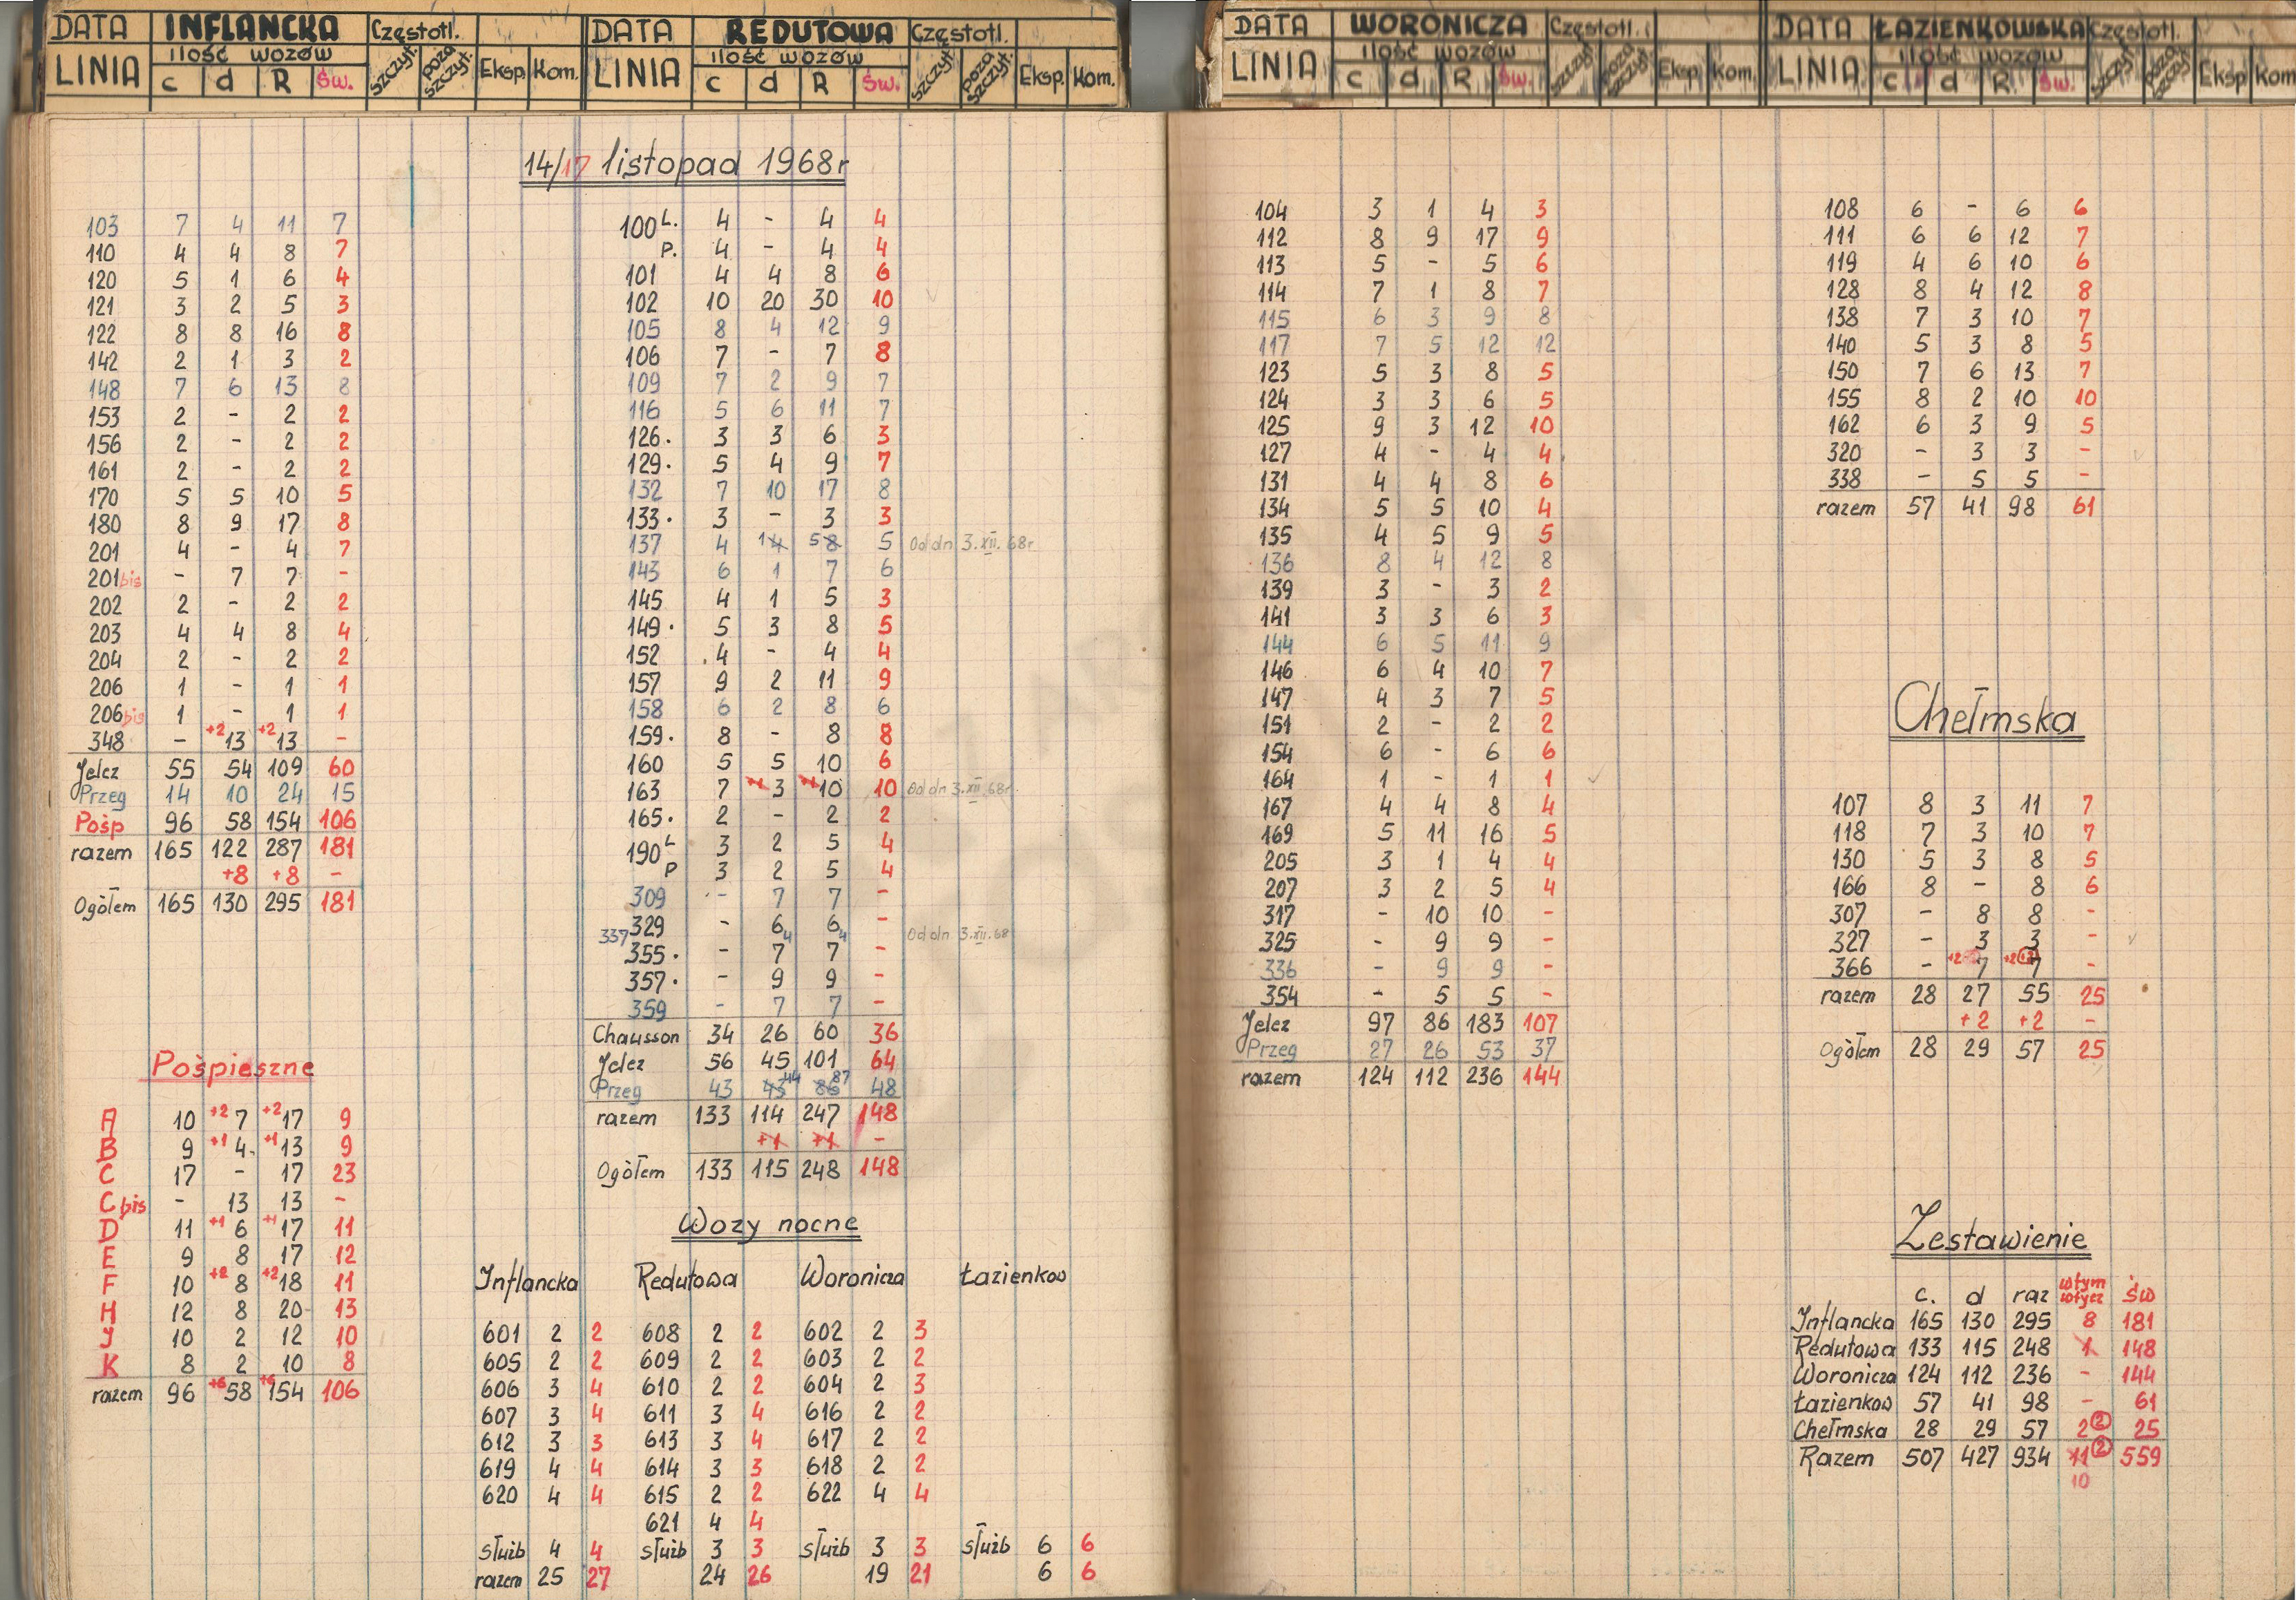 DATA INFLANCKA Częstotl.
LINIA ilość wozów
c d R Św. szczyt. poza szczyt. Eksp. Kom.
DATA REDUTOWA Częstotl.
LINIA ilość wozów
c d R Św. szczyt. poza szczyt. Eksp. Kom.
DATA WORONICZA Częstotl.
LINIA ilość wozów
c d R Św. szczyt poza szczyt Eksp. Kom.
DATA ŁAZIENKOWSKA Częstotl.
LINIA ilość wozów
c d R Św. szczyt poza szczyt Eksp Kom
14/17 listopad 1968r
103 7 4 11 7
110 4 4 8 7
120 5 1 6 4
121 3 2 5 3
122 8 8 16 8
142 2 1 3 2
148 7 6 13 8
153 2 - 2 2
156 2 - 2 2
161 2 - 2 2
170 5 5 10 5
180 8 9 17 8
201 4 - 4 7
201bis - 7 7 -
202 2 - 2 2
203 4 4 8 4
204 2 - 2 2
206 1 - 1 1
206bis 1 - 1 1
348 - +2 13 +2 13 -
Jelcz 55 54 109 60
Przeg 14 10 24 15
Pośp 96 58 154 106
razem 165 122 287 181
+8 +8 -
Ogółem 165 130 295 181
Pośpieszne
A 10 +2 7 +2 17 9
B 9 +1 4 +1 13 9
C 17 - 17 23
C bis - 13 13 -
D 11 +1 6 +1 17 11
E 9 8 17 12
F 10 +2 8 +2 18 11
H 12 8 20 13
J 10 2 12 10
K 8 2 10 8
razem 96 +6 58 +6 154 106
100 L. 4 - 4 4
P. 4 - 4 4
101 4 4 8 6
102 10 20 30 10
105 8 4 12 9
106 7 - 7 8
109 7 2 9 7
116 5 6 11 7
126. 3 3 6 3
129. 5 4 9 7
132 7 10 17 8
133. 3 - 3 3
137 4 1 4 5 8 5 Od dn 3.XII.68r
143 6 1 7 6
145 4 1 5 3
149. 5 3 8 5
152 4 - 4 4
157 9 2 11 9
158 6 2 8 6
159. 8 - 8 8
160 5 5 10 6
163 7 +1 3 +1 10 10 od dn 3.XII.68r.
165. 2 - 2 2
190 L 3 2 5 4
P 3 2 5 4
309 - 7 7 -
329 - 6 6 -
337 4 4 Od dn 3.XII.68
355. - 7 7 -
357. - 9 9 -
359 - 7 7 -
Chausson 34 26 60 36
Jelcz 56 45 101 64
Przeg 43 43 44 86 87 48
razem 133 114 247 148
+1 +1 -
Ogółem 133 115 248 148
Wozy nocne
Inflancka Redutowa Woronicza Łazienkow
601 2 2 608 2 2 602 2 3
605 2 2 609 2 2 603 2 2
606 3 4 610 2 2 604 2 3
607 3 4 611 3 4 616 2 2
612 3 3 613 3 4 617 2 2
619 4 4 614 3 3 618 2 2
620 4 4 615 2 2 622 4 4
621 4 4
służb 4 4 służb 3 3 służb 3 3 służb 6 6
razem 25 27 24 26 19 21 6 6
104 3 1 4 3
112 8 9 17 9
113 5 - 5 6
114 7 1 8 7
115 6 3 9 8
117 7 5 12 12
123 5 3 8 5
124 3 3 6 5
125 9 3 12 10
127 4 - 4 4
131 4 4 8 6
134 5 5 10 4
135 4 5 9 5
136 8 4 12 8
139 3 - 3 2
141 3 3 6 3
144 6 5 11 9
146 6 4 10 7
147 4 3 7 5
151 2 - 2 2
154 6 - 6 6
164 1 - 1 1
167 4 4 8 4
169 5 11 16 5
205 3 1 4 4
207 3 2 5 4
317 - 10 10 -
325 - 9 9 -
336 - 9 9 -
354 - 5 5 -
Jelcz 97 86 183 107
Przeg 27 26 53 37
razem 124 112 236 144
108 6 - 6 6
111 6 6 12 7
119 4 6 10 6
128 8 4 12 8
138 7 3 10 7
140 5 3 8 5
150 7 6 13 7
155 8 2 10 10
162 6 3 9 5
320 - 3 3 -
338 - 5 5 -
razem 57 41 98 61
Chełmska
107 8 3 11 7
118 7 3 10 7
130 5 3 8 5
166 8 - 8 6
307 - 8 8 -
327 - 3 3 -
366 - +2 7 +2 7 -
razem 28 27 55 25
+2 +2 -
Ogółem 28 29 57 25
Zestawienie
c. d raz w tym wtycz św
Inflancka 165 130 295 8 181
Redutowa 133 115 248 1 148
Woronicza 124 112 236 - 144
Łazienkow 57 41 98 - 61
Chełmska 28 29 57 2 2 25
Razem 507 427 934 11 2 559
10